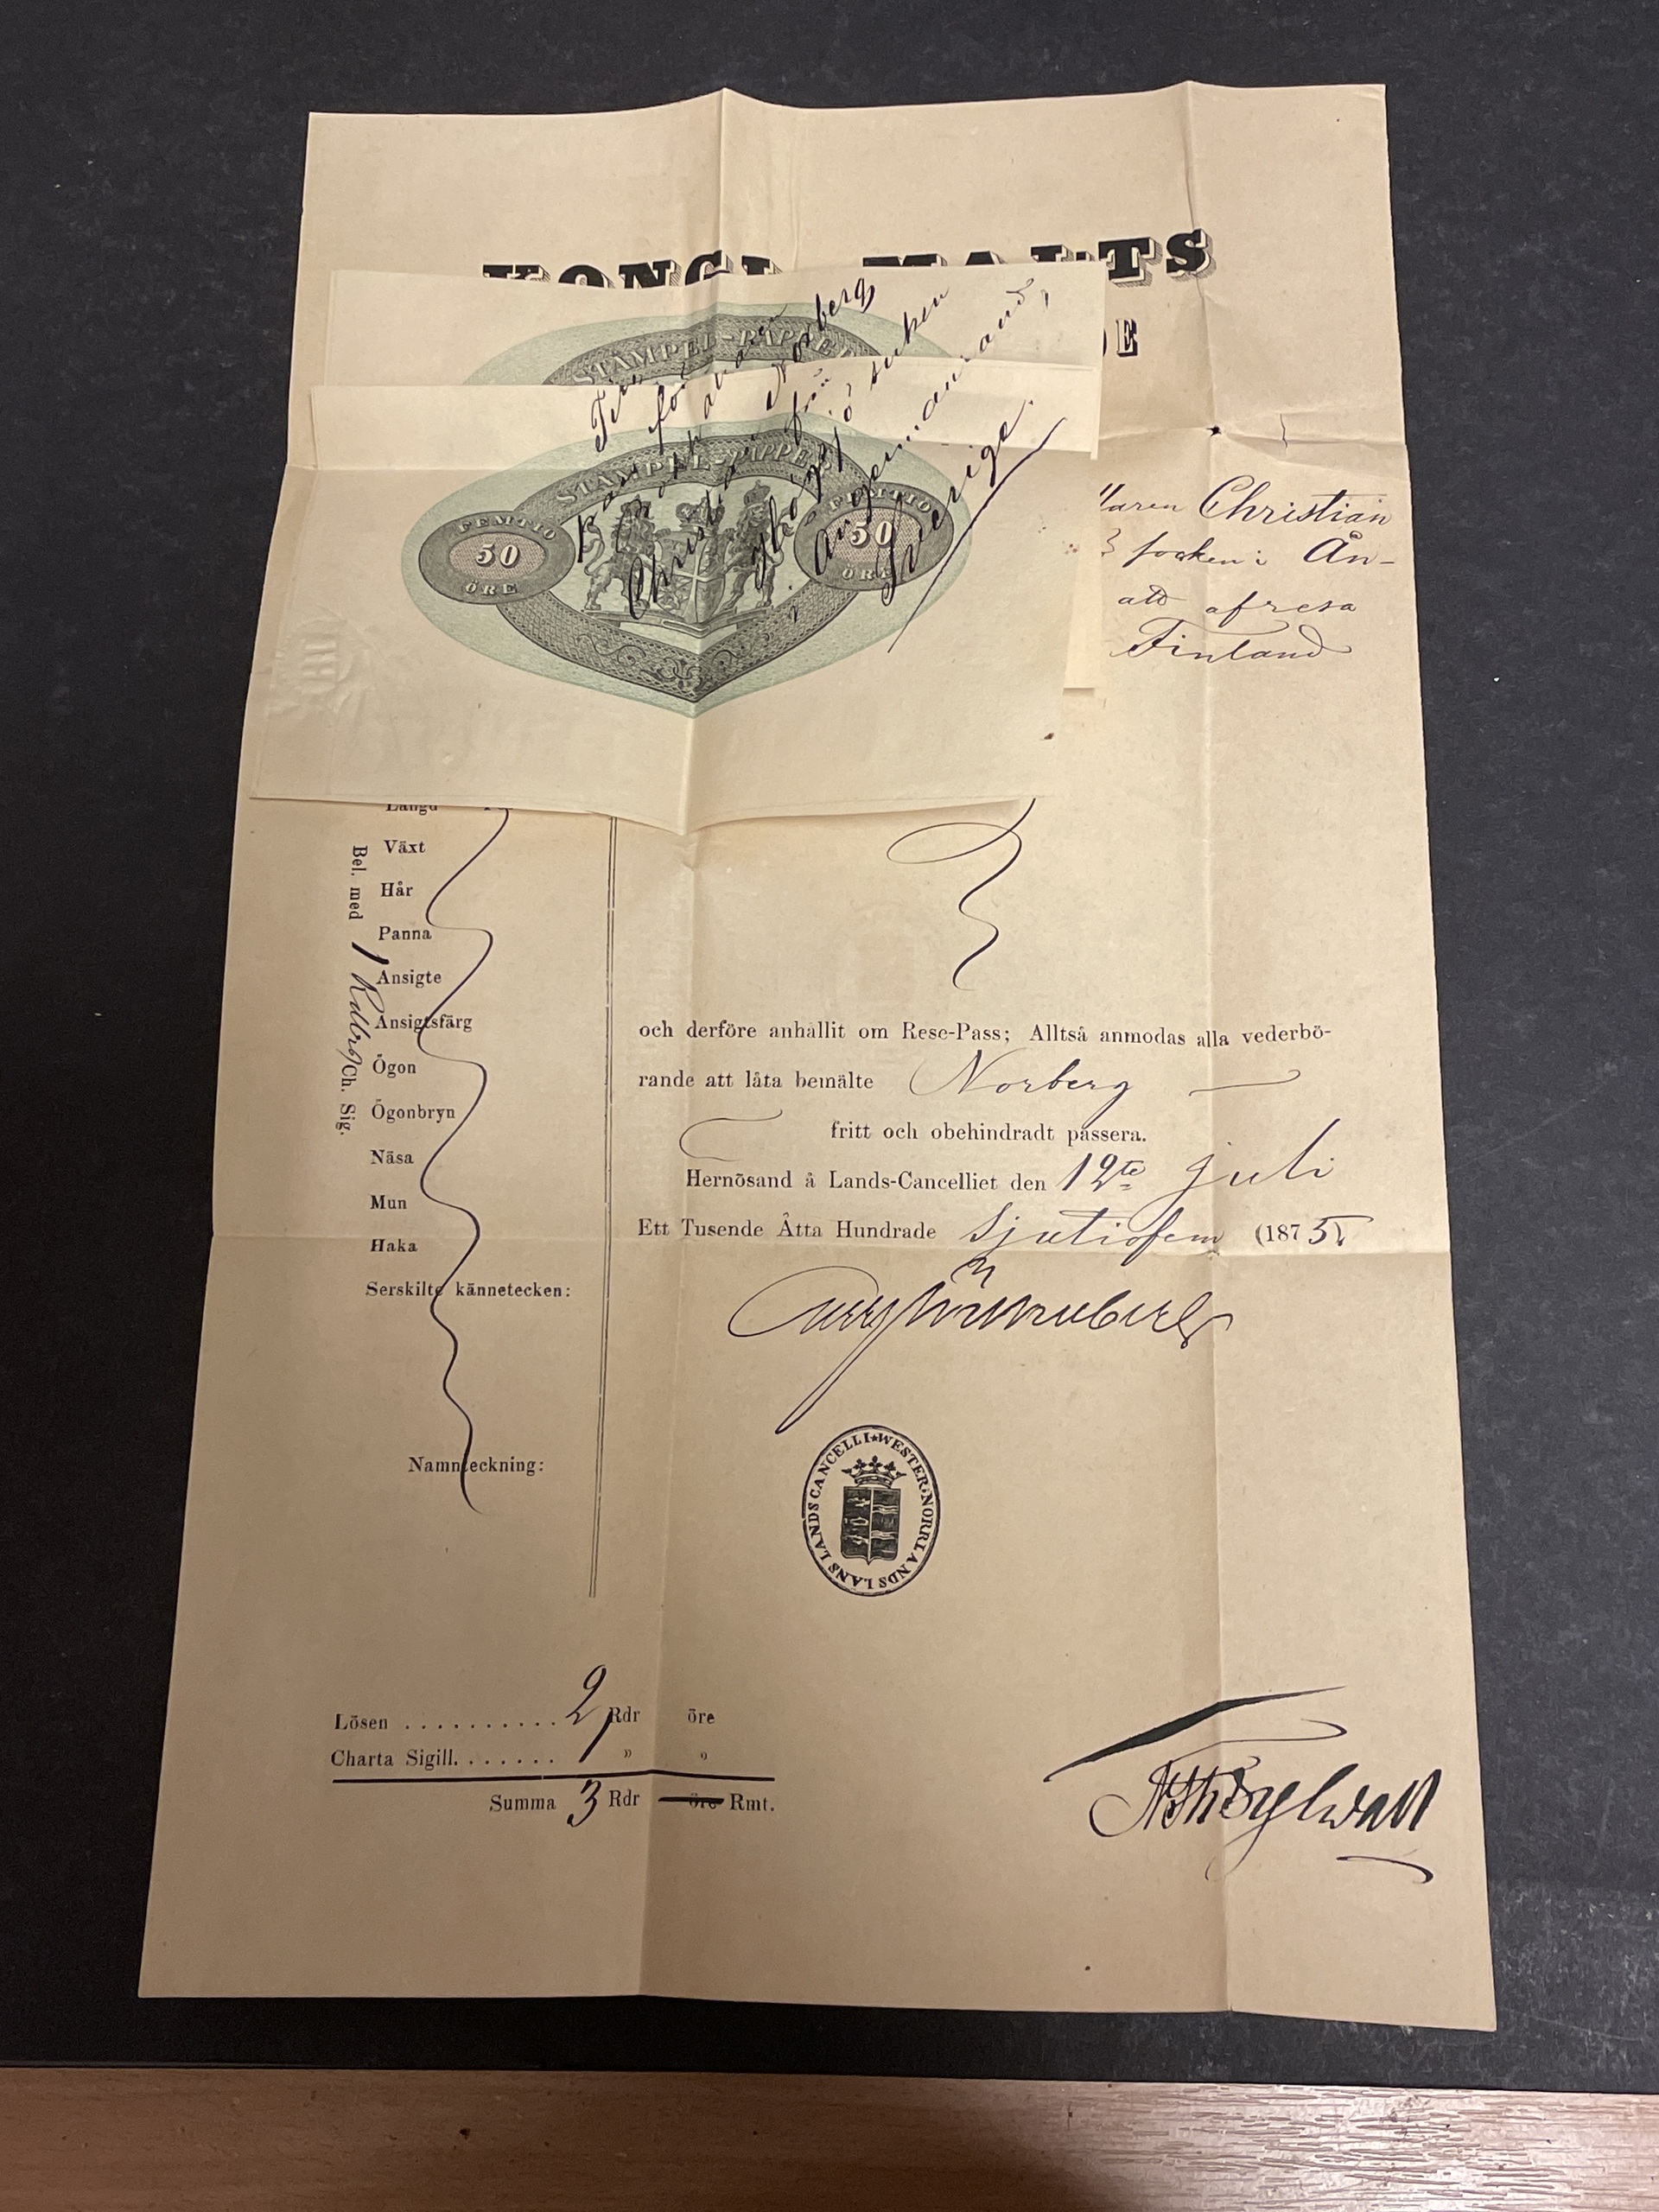 KONGL. MAJ:TS
DE
STÄMPEL-PAPPER
STÄMPEL-PAPPER
FEMTIO
50
ÖRE
FEMTIO
50
ÖRE
för
Norberg
Christian
från
socken
Ångermanland,
Sverige.
Christian
socken i Ån-
att afresa
Finland
Längd
Växt
Hår
Panna
Ansigte
Ansigtsfärg
Ögon
Ögonbryn
Näsa
Mun
Haka
Serskilte kännetecken:
Namnteckning:
Bel. med 1 Rdlr Ch. Sig.
och derföre anhållit om Rese-Pass; Alltså anmodas alla vederbö-
rande att låta bemälte Norberg
fritt och obehindradt passera.
Hernösand å Lands-Cancelliet den 12te Juli
Ett Tusende Åtta Hundrade Sjutiofem (1875).
WESTER-NORRLANDS LÄNS LANDSCANCELLI
Lösen .......... 2 Rdr öre
Charta Sigill. ...... 1 " "
Summa 3 Rdr öre Rmt.